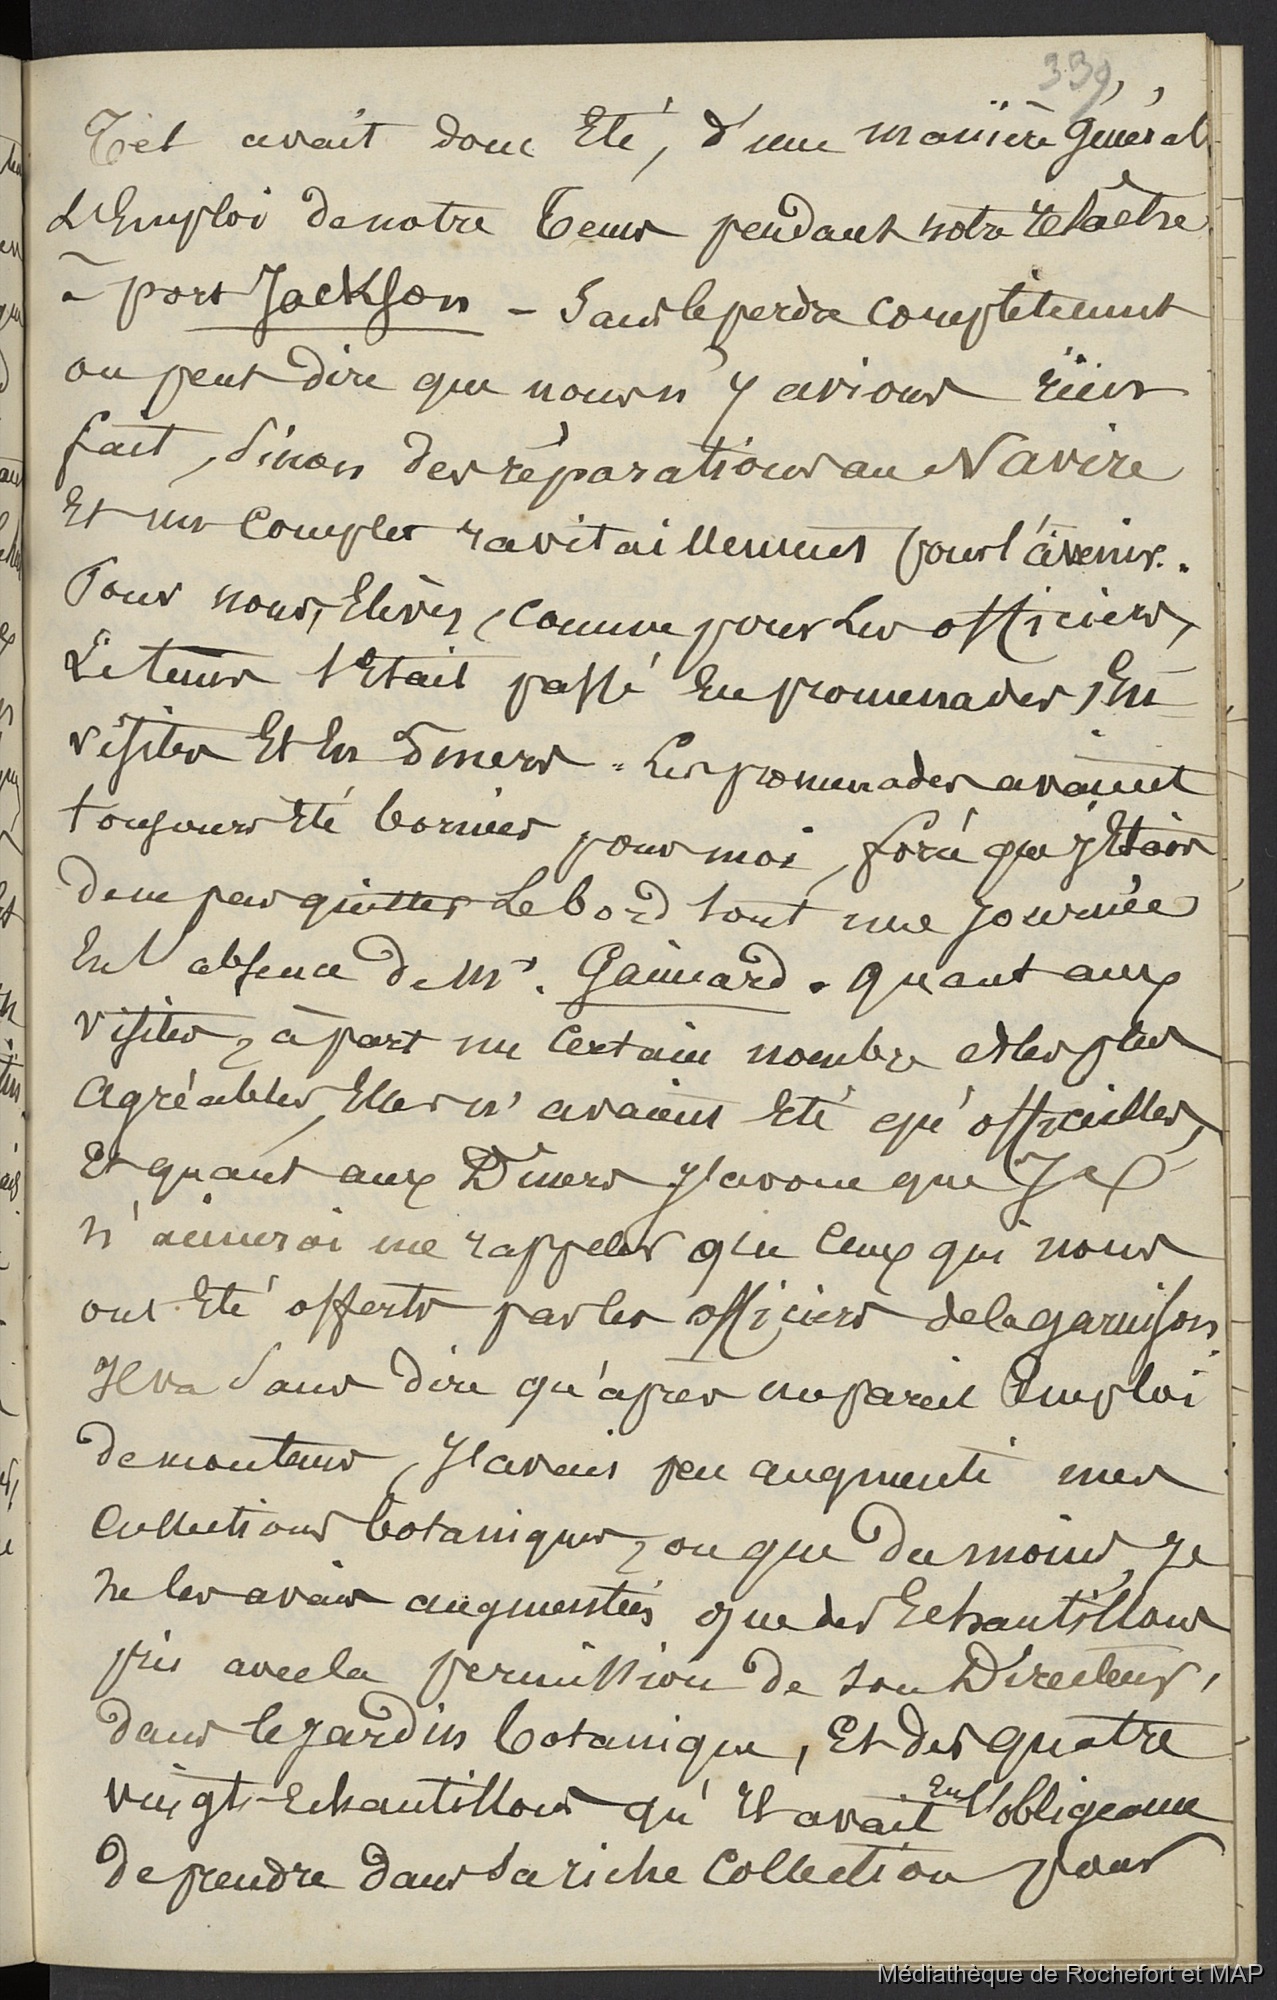 339
Tel avait donc Eté, d'une manière général
L'Emploi de notre tems pendant notre relâche
à port Jackson - Sans le perdre complètement
on peut dire que nous n'y avions rien
fait, Sinon des réparations au Navire
Et un complet ravitaillement pour l'avenir.
Pour nous, Elèves, comme pour Les officiers,
Le tems s'Etait passé En promenades, En
visites Et En dîners. Les promenades avaient
toujours Eté bornées pour moi, forcé que j'Etais
de ne pas quitter Le bord tout une journée
En l'absence de Mr. Gaimard. Quant aux
visites, à part un certain nombre et les plus
agréables, Elles n'avaient Eté qu'officielles,
Et quant aux Dîners J'avoue que Je
n'aimerai me rappeler que ceux qui nous
ont Eté offerts par les officiers de la garnison.
Il va Sans dire qu'après un pareil Emploi
de mon tems, J'avais peu augmenté mes
Collections botaniques, ou que du moins, Je
ne les avais augmentées que des Echantillons
pris avec la permission de son Directeur,
dans le Jardin botanique, Et des quatre
vingt Echantillons qu'il avait Eu l'obligeance
de prendre dans sa riche Collection pour
Médiathèque de Rochefort et MAP